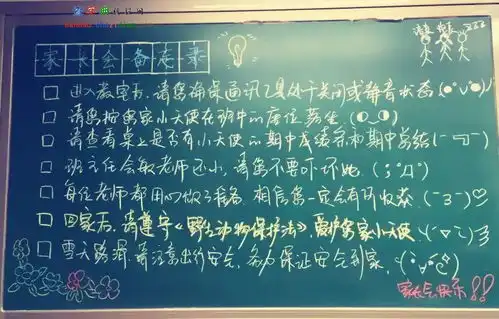 家长会备忘录
□ 进入教室后,请您确保通讯工具处于关闭或静音状态
□ 请您按您家小天使在班中的座位落坐.
□ 请查看桌上是否有小天使的期中成绩条和期中总结
□ 班主任会敏老师还小,请您不要吓她.
□ 每位老师都用心做了准备,相信您一定会有所收获.
□ 回家后,请遵守《野生动物保护法》,爱护您家小天使.
□ 雪天路滑,请注意出行安全,务必保证安全到家.
家长会快乐!!